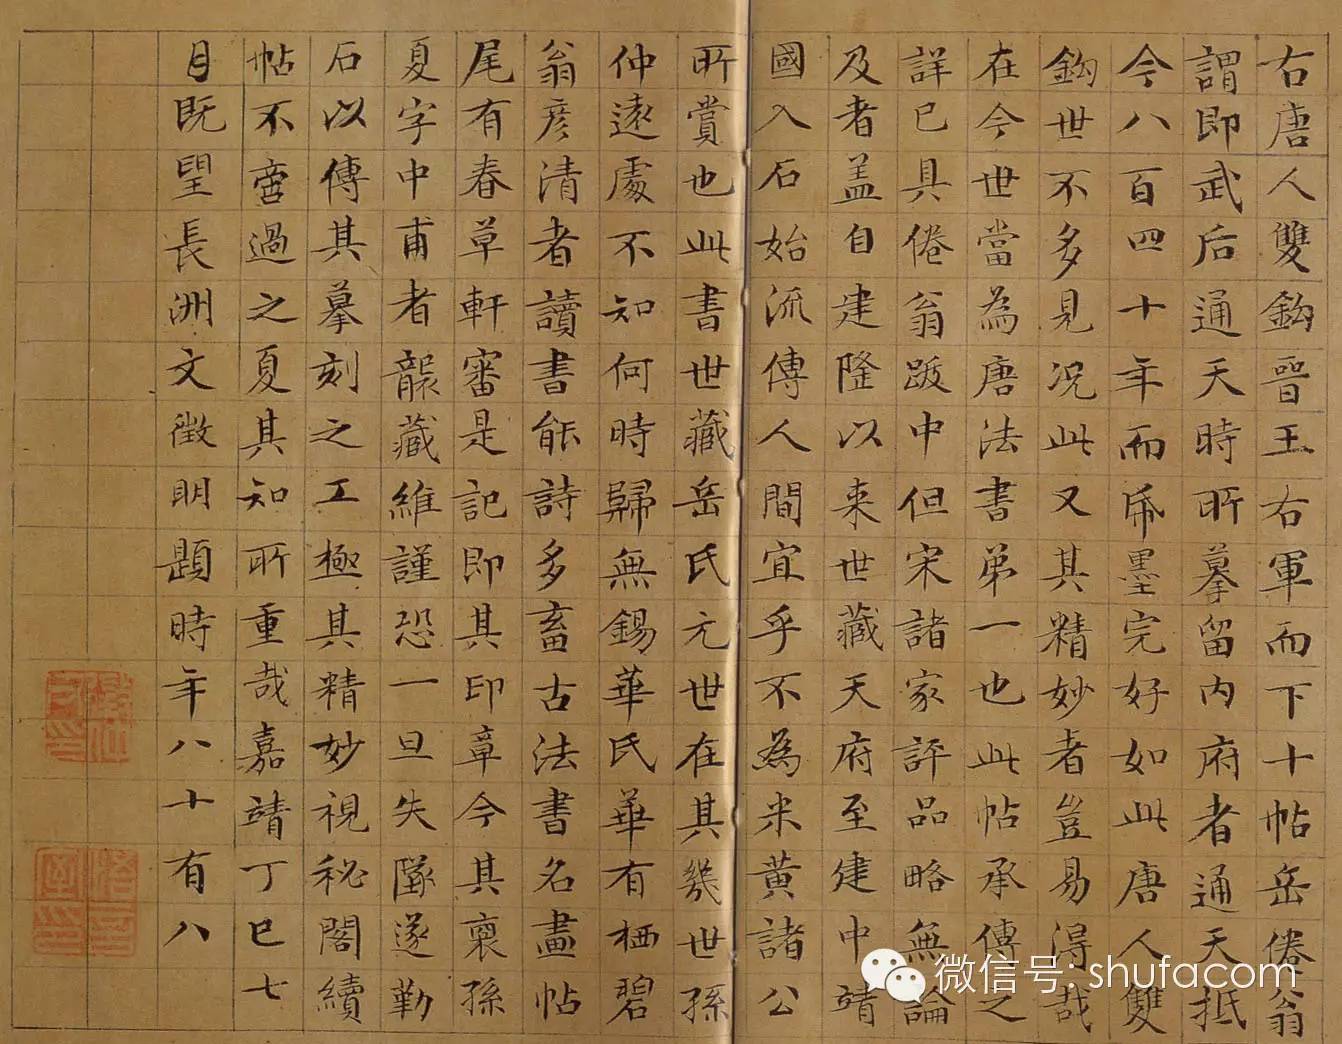 右唐人雙鈎晉王右軍而下十帖岳倦翁
謂即武后通天時所摹留内府者通天抵
今八百四十年而帋墨完好如此唐人雙
鈎世不多見况此又其精妙者豈易得哉
在今世當為唐法書第一也此帖承傳之
詳已具倦翁跋中但宋諸家評品略無論
及者盖自建隆以来世藏天府至建中靖
國入石始流傳人間宜乎不為米黄諸公
所賞也此書世藏岳氏元世在其幾世孫
仲遠處不知何時歸無錫華氏華有栖碧
翁彦清者讀書能詩多畜古法書名畫帖
尾有春草軒審是記即其印章今其裔孫
夏字中甫者襲藏維謹恐一旦失墜遂勒
石以傳其摹刻之工極其精妙視秘閣續
帖不啻過之夏其知所重哉嘉靖丁巳七
月既望長洲文徵明題時年八十有八
悟言室印
微信号: shufacom